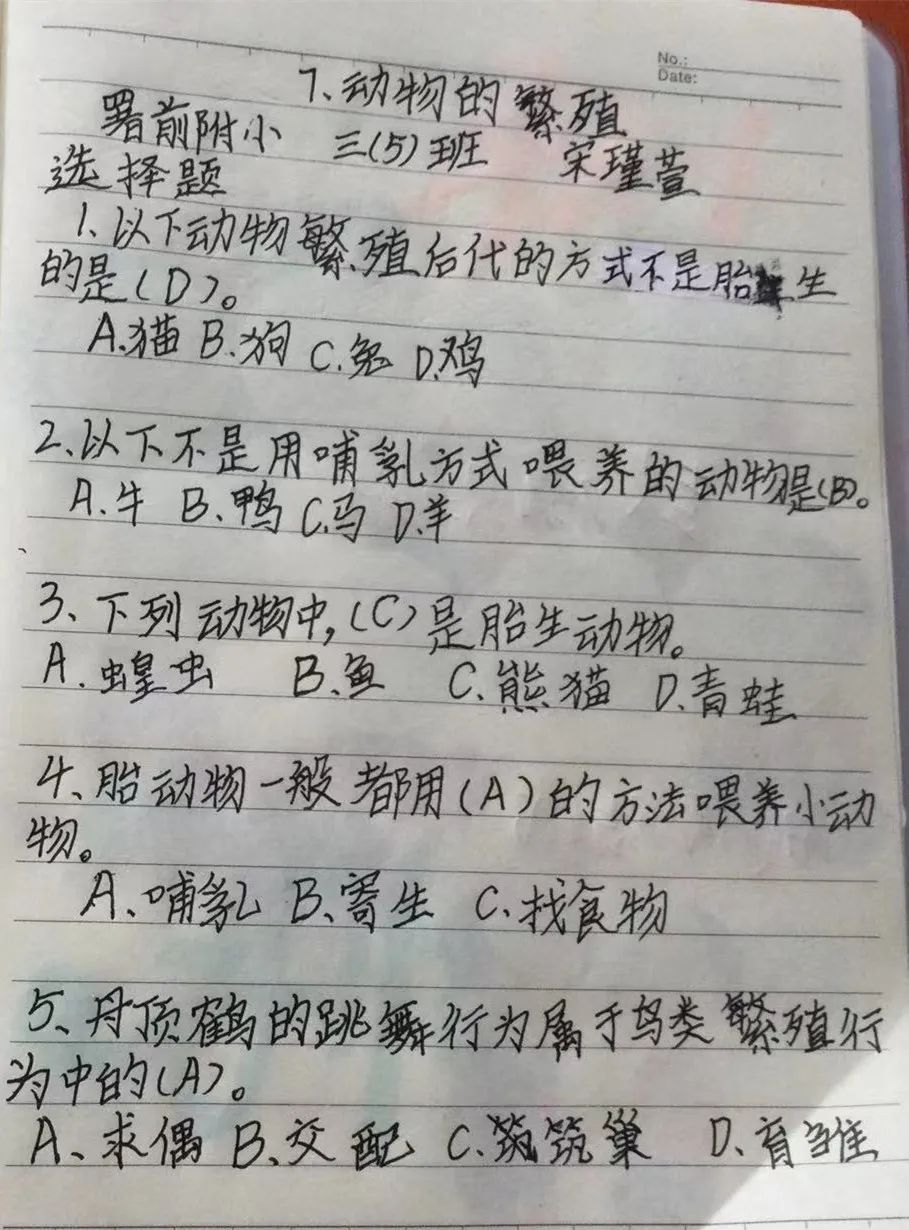 No.:
Date:
7.动物的繁殖
署前附小 三(5)班 宋瑾萱
选择题
1.以下动物繁殖后代的方式不是胎生
的是(D)。
A.猫 B.狗 C.兔 D.鸡
2.以下不是用哺乳方式喂养的动物是(B)。
A.牛 B.鸭 C.马 D.羊
3、下列动物中,(C)是胎生动物。
A.蝗虫 B.鱼 C.熊猫 D.青蛙
4、胎动物一般都用(A)的方法喂养小动
物。
A、哺乳 B、寄生 C、找食物
5、丹顶鹤的跳舞行为属于鸟类繁殖行
为中的(A)。
A、求偶 B、交配 C、筑筑巢 D、育雏